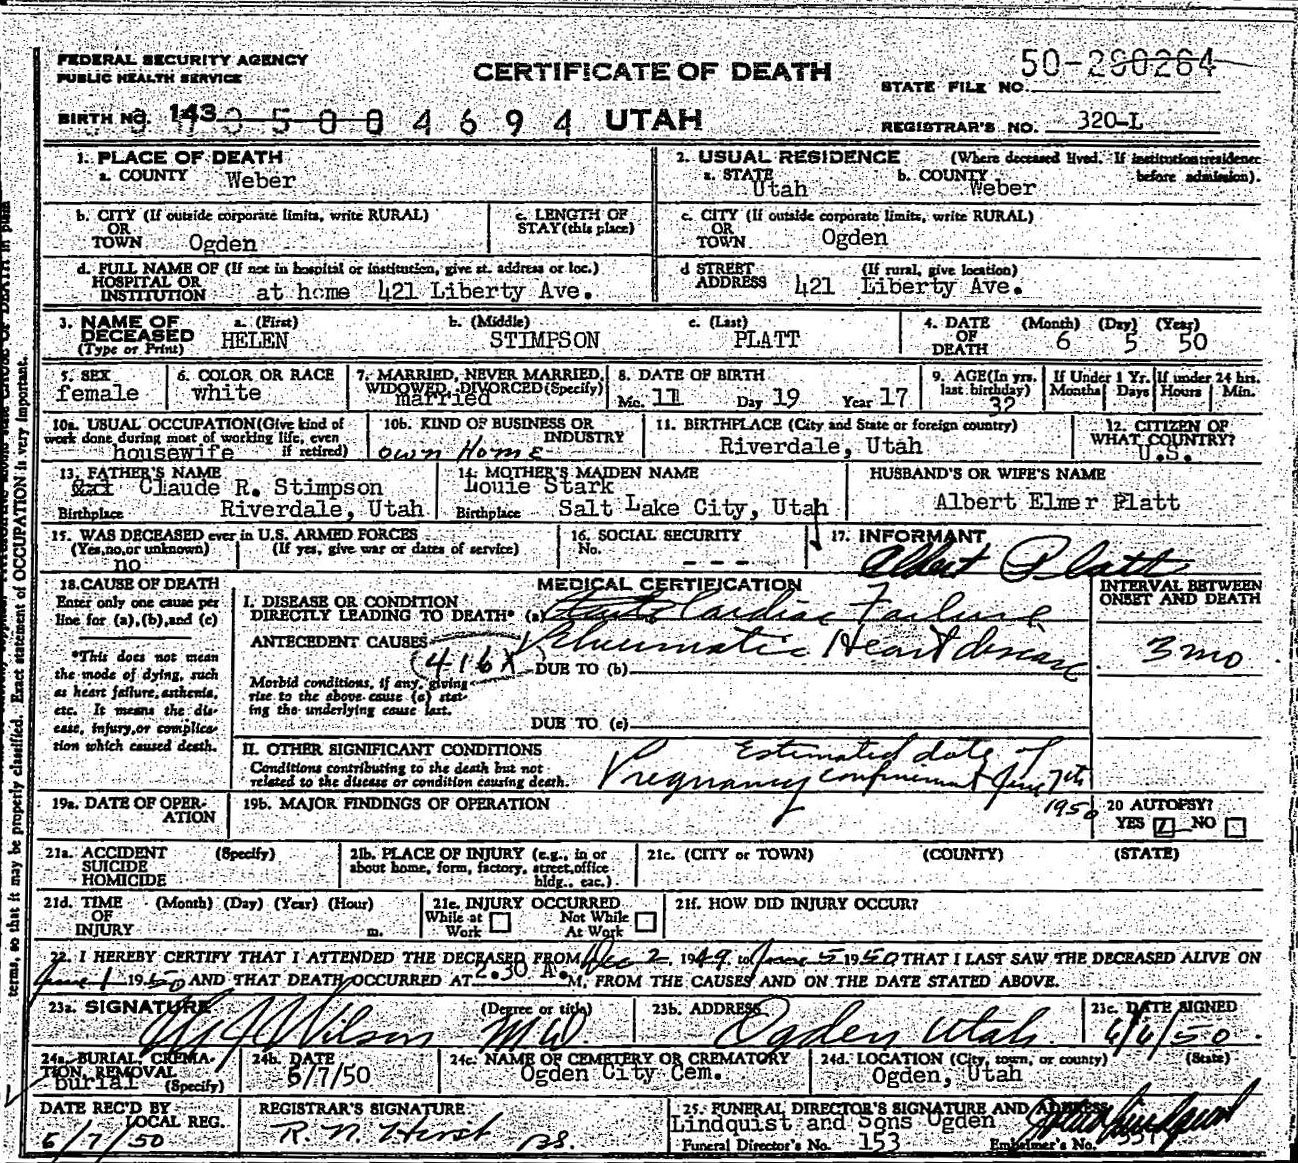 FEDERAL SECURITY AGENCY
PUBLIC HEALTH SERVICE
CERTIFICATE OF DEATH
STATE FILE NO. 50-280264
BIRTH NO. 143
4694 UTAH
REGISTRAR'S NO. 320-L
1. PLACE OF DEATH
a. COUNTY Weber
2. USUAL RESIDENCE (Where deceased lived. If institution: residence before admission).
a. STATE Utah b. COUNTY Weber
b. CITY (If outside corporate limits, write RURAL)
OR
TOWN Ogden
c. LENGTH OF
STAY (this place)
c. CITY (If outside corporate limits, write RURAL)
OR
TOWN Ogden
d. FULL NAME OF (If not in hospital or institution, give st. address or loc.)
HOSPITAL OR
INSTITUTION at home 421 Liberty Ave.
d STREET (If rural, give location)
ADDRESS 421 Liberty Ave.
3. NAME OF DECEASED (Type or Print)
a. (First) b. (Middle) c. (Last)
HELEN STIMPSON PLATT
4. DATE OF DEATH (Month) (Day) (Year)
6 5 50
5. SEX
female
6. COLOR OR RACE
white
7. MARRIED, NEVER MARRIED,
WIDOWED, DIVORCED (Specify)
married
8. DATE OF BIRTH
Mo. 11 Day 19 Year 17
9. AGE (In yrs. last birthday)
32
If Under 1 Yr. Months Days
If under 24 hrs. Hours Min.
10a. USUAL OCCUPATION (Give kind of
work done during most of working life, even
if retired) housewife
10b. KIND OF BUSINESS OR
INDUSTRY
own Home
11. BIRTHPLACE (City and State or foreign country)
Riverdale, Utah
12. CITIZEN OF
WHAT COUNTRY?
U.S.
13. FATHER'S NAME
Claude R. Stimpson
Birthplace Riverdale, Utah
14. MOTHER'S MAIDEN NAME
Louie Stark
Birthplace Salt Lake City, Utah
HUSBAND'S OR WIFE'S NAME
Albert Elmer Platt
15. WAS DECEASED ever in U.S. ARMED FORCES
(Yes, no, or unknown) (If yes, give war or dates of service)
no
16. SOCIAL SECURITY
No. - - -
17. INFORMANT
Albert Platt
18. CAUSE OF DEATH
Enter only one cause per
line for (a), (b), and (c)
*This does not mean
the mode of dying, such
as heart failure, asthenia,
etc. It means the dis-
ease, injury, or complica-
tion which caused death.
MEDICAL CERTIFICATION
INTERVAL BETWEEN
ONSET AND DEATH
I. DISEASE OR CONDITION
DIRECTLY LEADING TO DEATH* (a) Acute Cardiac Failure
ANTECEDENT CAUSES Rheumatic Heart disease 3 mo
(416X) DUE TO (b)
Morbid conditions, if any, giving
rise to the above cause (a) stat-
ing the underlying cause last.
DUE TO (c)
II. OTHER SIGNIFICANT CONDITIONS
Conditions contributing to the death but not
related to the disease or condition causing death.
Estimated date of
Pregnancy confinement June 7th
1950
19a. DATE OF OPER-
ATION
19b. MAJOR FINDINGS OF OPERATION
20 AUTOPSY?
YES NO
21a. ACCIDENT (Specify)
SUICIDE
HOMICIDE
21b. PLACE OF INJURY (e.g., in or
about home, form, factory, street, office
bldg., eac.)
21c. (CITY or TOWN) (COUNTY) (STATE)
21d. TIME (Month) (Day) (Year) (Hour)
OF
INJURY m.
21e. INJURY OCCURRED
While at Work Not While At Work
21f. HOW DID INJURY OCCUR?
22. I HEREBY CERTIFY THAT I ATTENDED THE DECEASED FROM Dec 2, 1949 to June 5 1950 THAT I LAST SAW THE DECEASED ALIVE ON
June 1 1950 AND THAT DEATH OCCURRED AT 2:30 A. M, FROM THE CAUSES AND ON THE DATE STATED ABOVE.
23a. SIGNATURE (Degree or title)
Wilson M.D.
23b. ADDRESS
Ogden Utah
23c. DATE SIGNED
6/6/50
24a. BURIAL, CREMA-
TION, REMOVAL
(Specify) burial
24b. DATE
6/7/50
24c. NAME OF CEMETERY OR CREMATORY
Ogden City Cem.
24d. LOCATION (City, town, or county) (State)
Ogden, Utah
DATE REC'D BY
LOCAL REG.
6/7/50
REGISTRAR'S SIGNATURE
25. FUNERAL DIRECTOR'S SIGNATURE AND ADDRESS
Lindquist and Sons Ogden
Funeral Director's No. 153 Embalmer's No.
terms, so that it may be properly classified. Exact statement of OCCUPATION is very important.